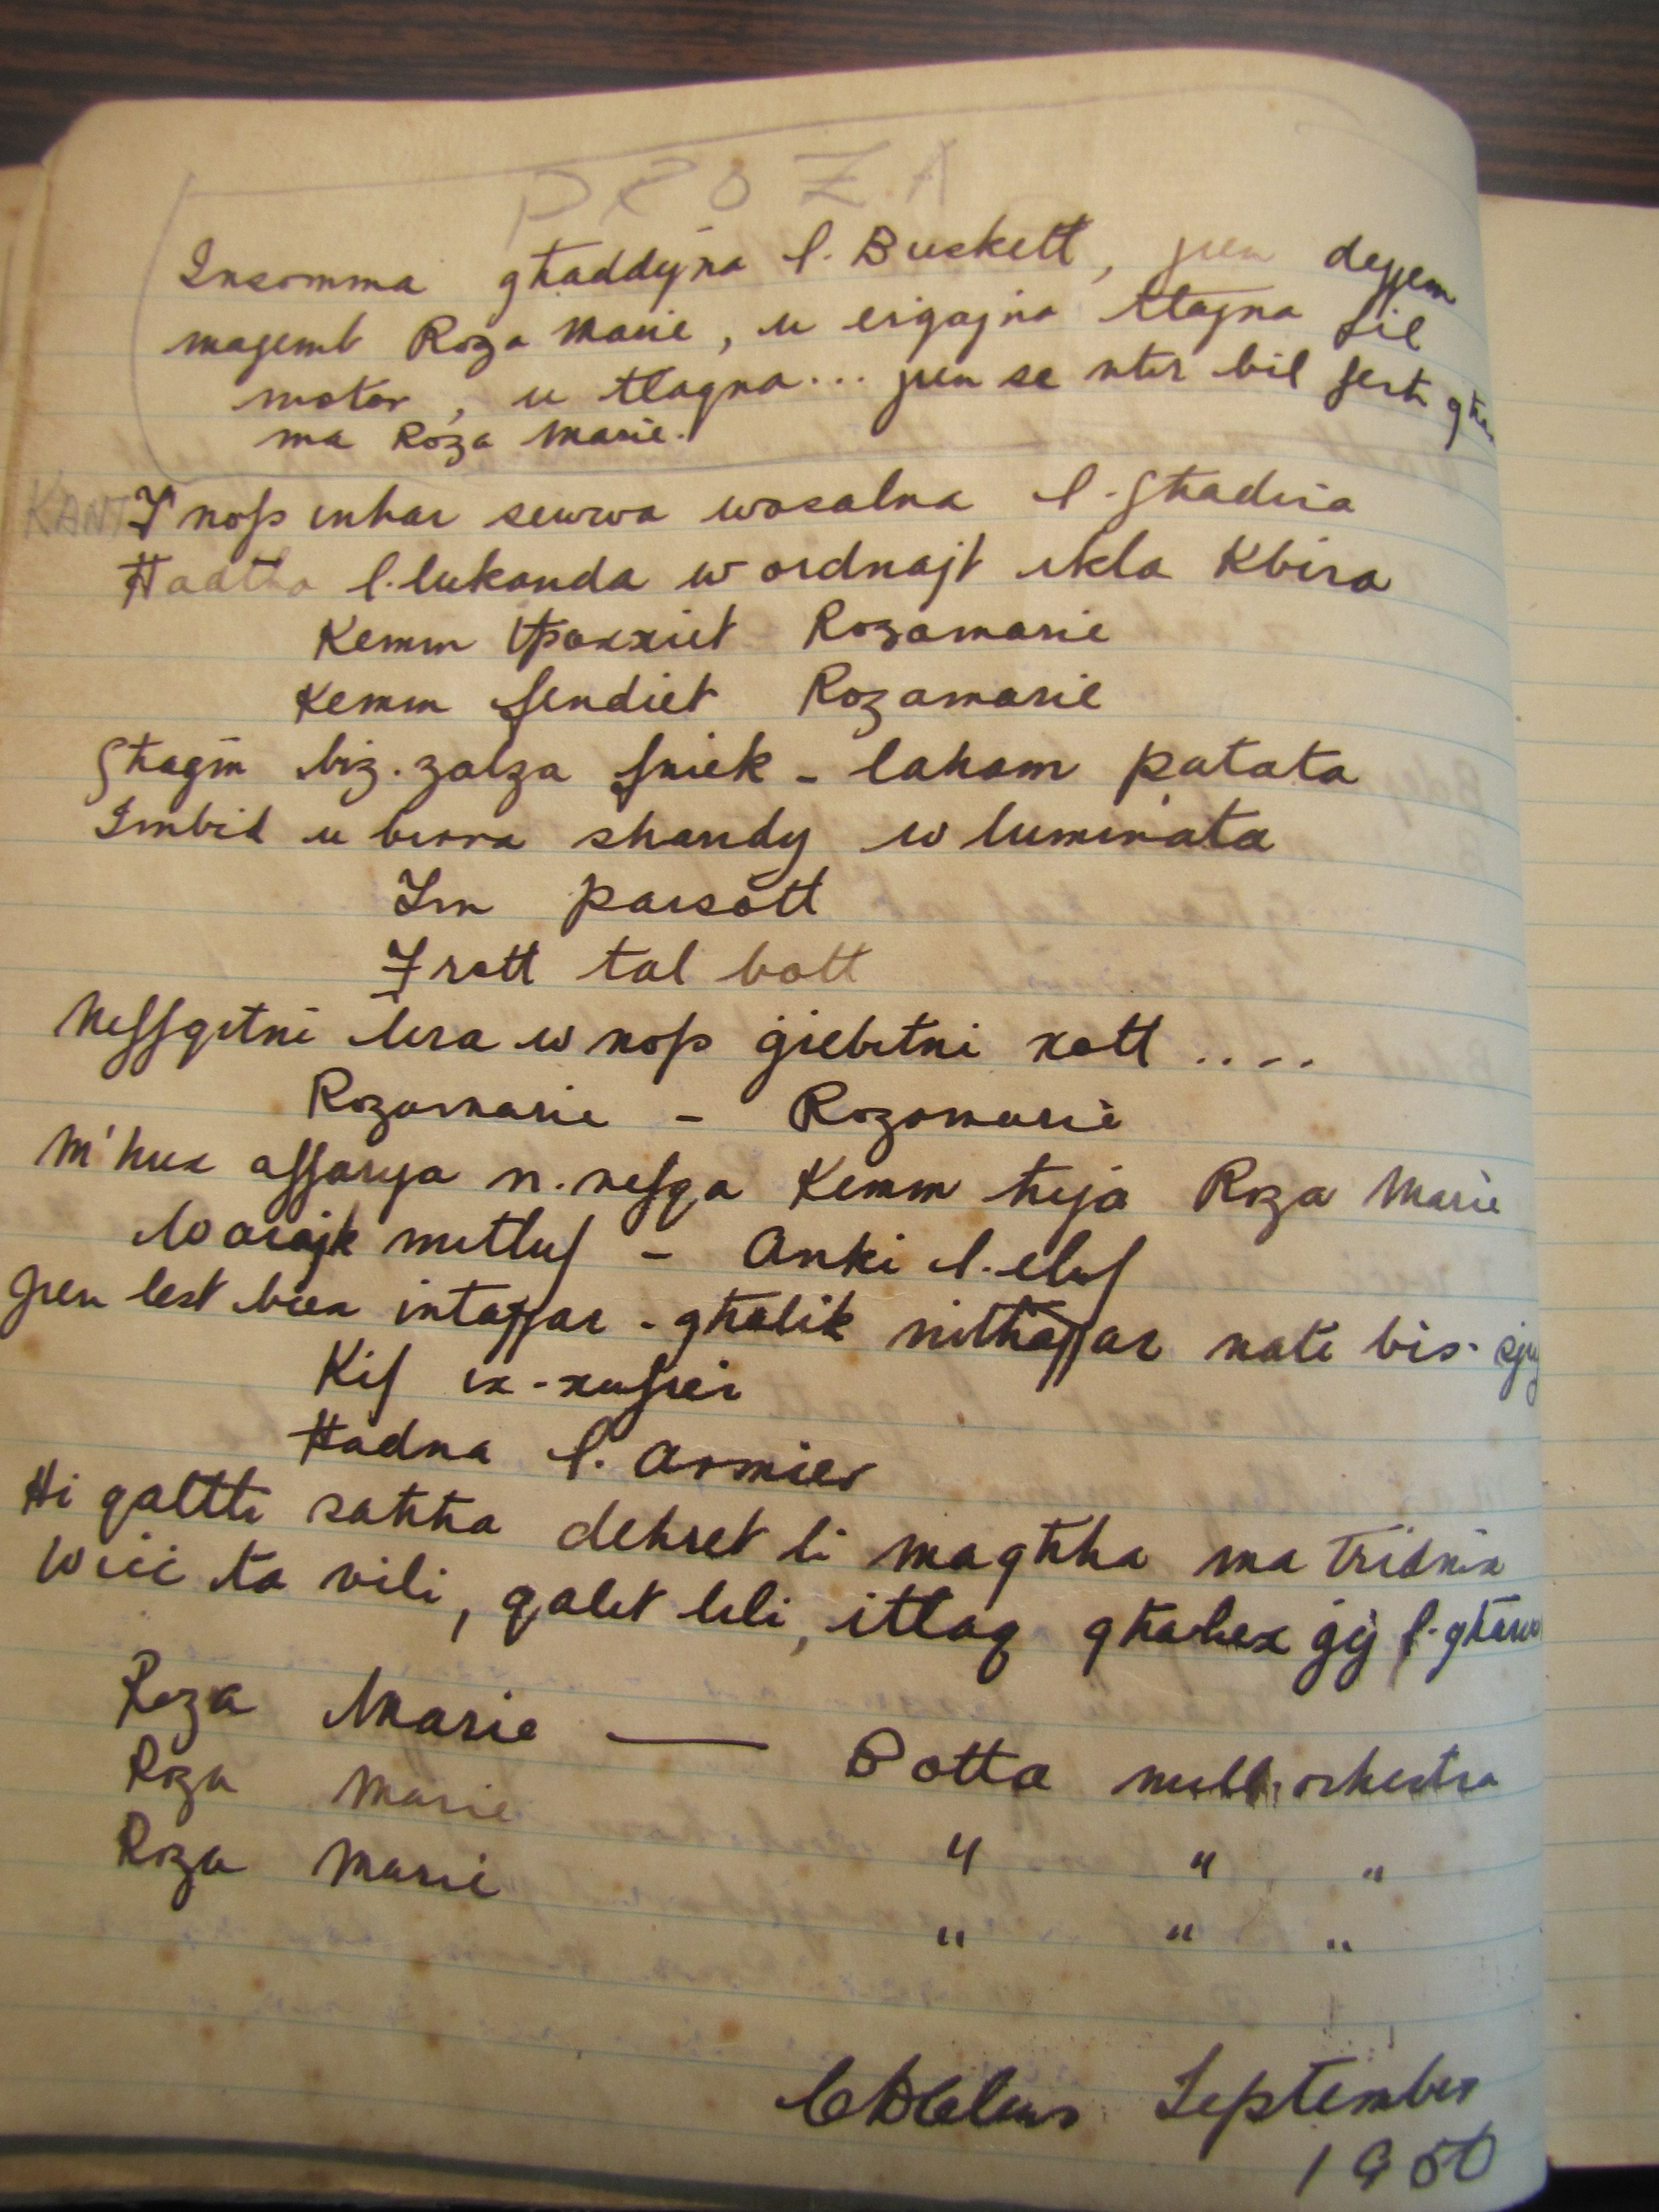 PROZA
Insomma għaddejna l-Buskett, jien dejjem
magemb Roza Marie, u ergajna tlajna fil
motor, u tlaqna... jien se ntir bil ferħ għax
ma Roza Marie.
KANT F'nofs inhar sewwa wasalna l-Għadira
Ħadtha l-lukanda w ordnajt ikla Kbira
Kemm Rozamarie
Kemm fendiet Rozamarie
Għagin biz-zalza fniek - laham patata
Imbid u birra shandy w luminata
Im parsott
Frott tal bott
Neffqitni lira w nofs ġiebitni xott ....
Rozamarie - Rozamarie
M'hux affarija n-nefqa Kemm hija Roza Marie
W arajk mitluf - Anki l-eluf
jien lest biex intajjar - għalik nithajjar nati bis-
Kif ix-xufier
Ħadna l-Armier
Hi qaltli saħħa dehret li magħha ma tridnix
Wiċċ ta vili, qalet lili, itlaq għalhex ġej l-għarus
Roza Marie — Botta mill orkestra
Roza Marie " " "
Roza Marie " " "
September
1950